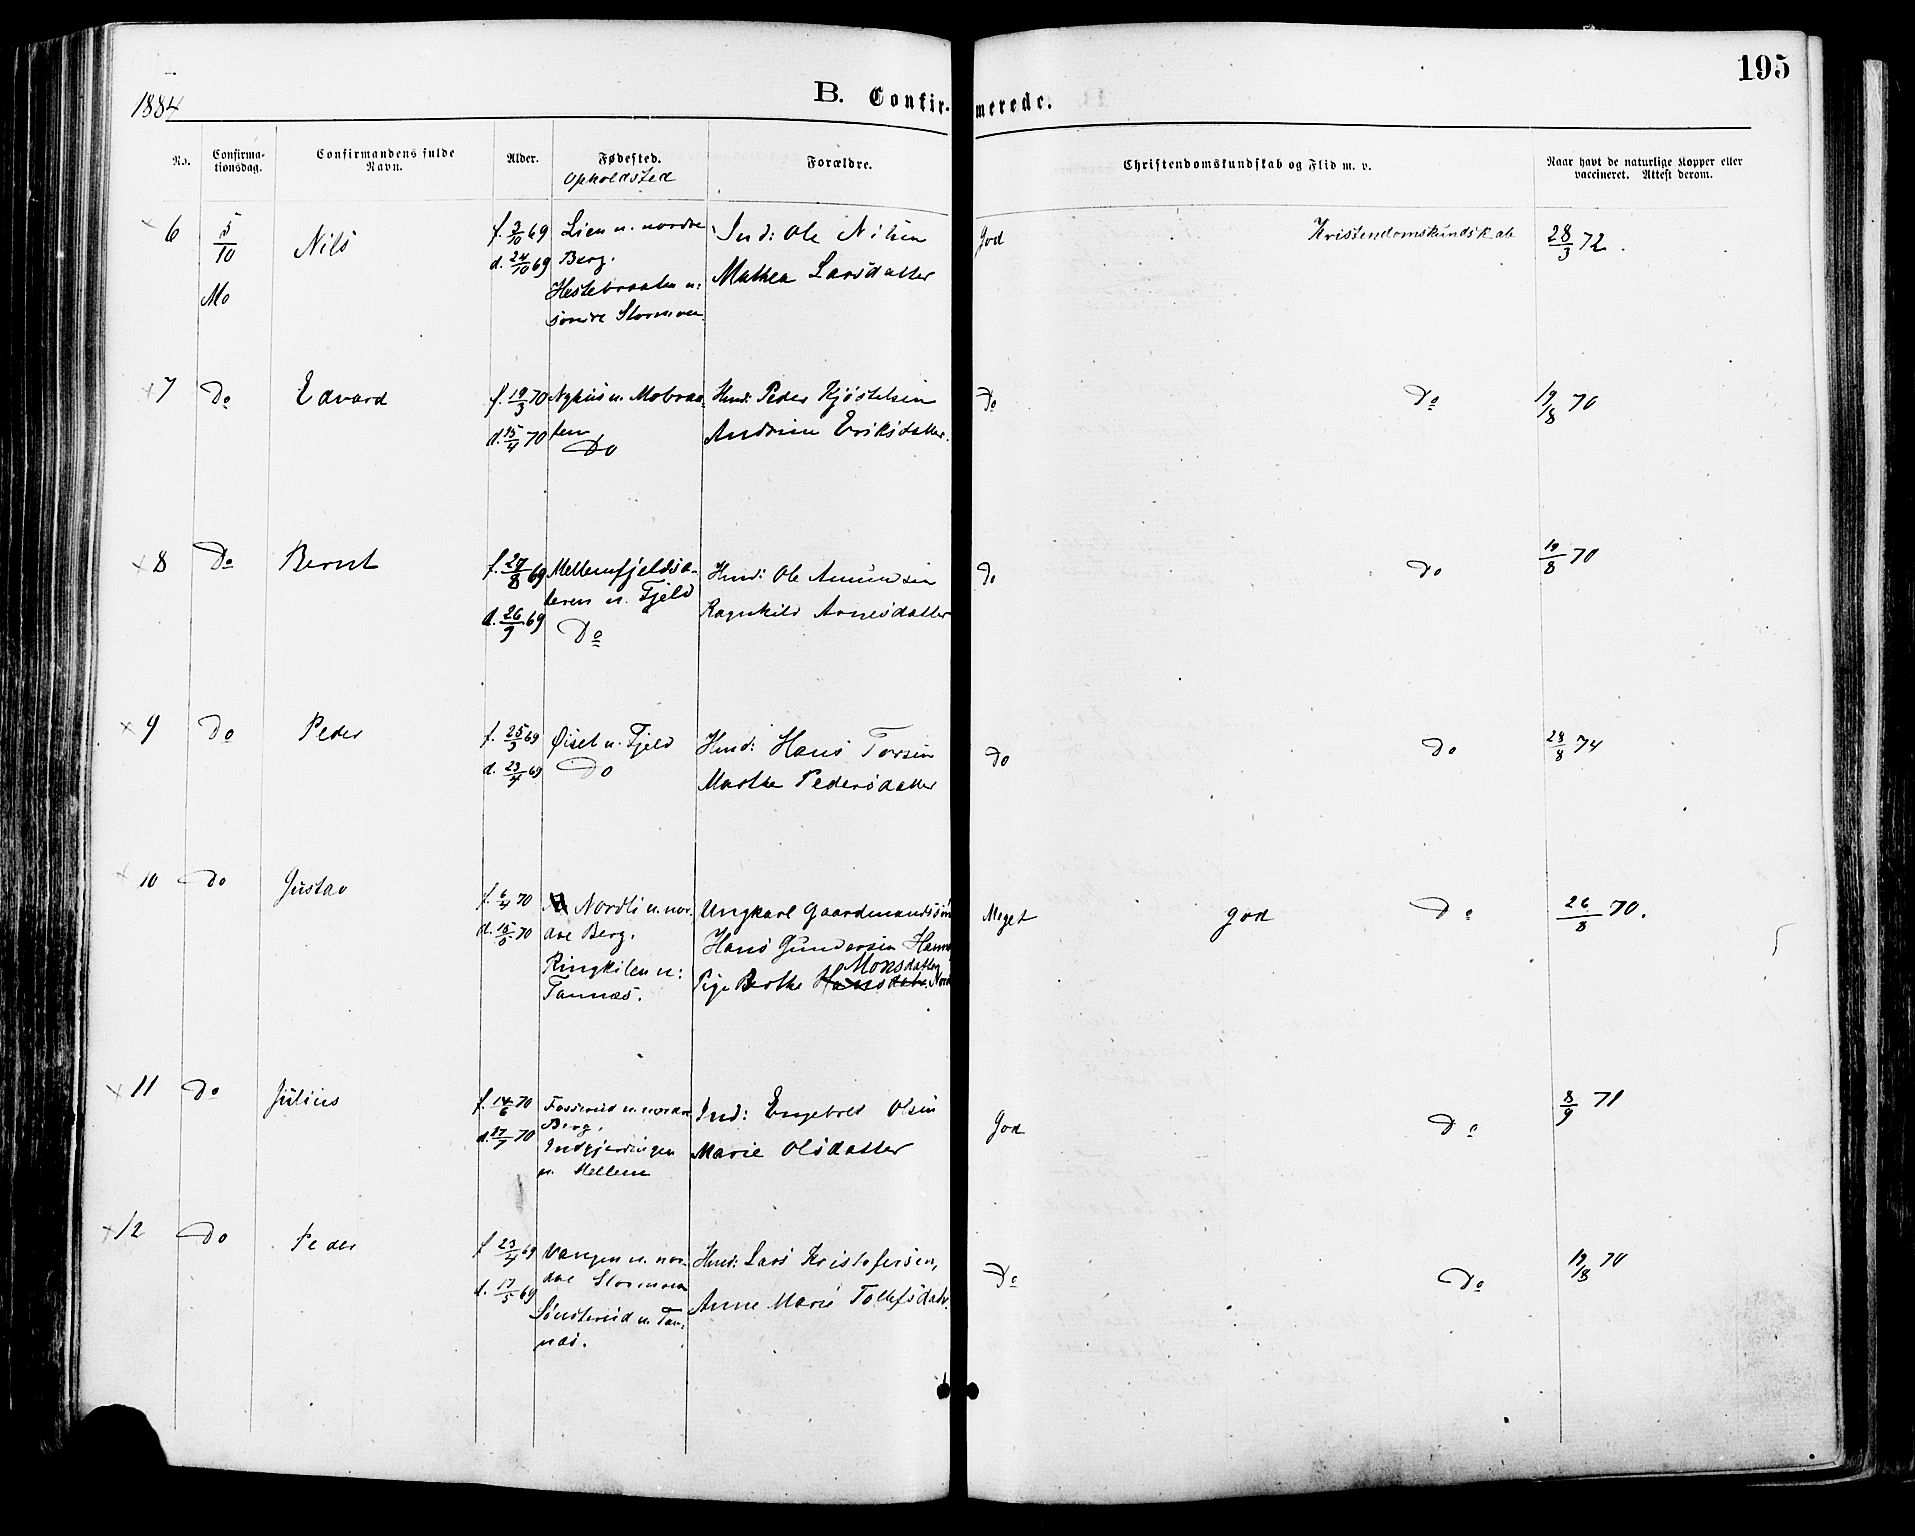 195
1884
B. Confir-
merede.
No.
Confirma-
tionsdag.
Confirmandens fulde
Navn.
Alder.
Fødested.
Opholdsted
Forældre.
Christendomskundskab og Flid m. v.
Naar havt de naturlige Kopper eller
vaccineret. Attest derom.
6
5/10
Mo
Nils
f. 3/10 69
d. 24/10 69
Lien u. nordre
Berg.
Hestebraaten u:
søndre Stormoen
Ind: Ole Nilsen
Mathea Larsdatter
God
Kristendomskundskab
28/3 72.
7
Do
Edvard
f. 19/3 70
d. 15/4 70
Nyhus u. Mobraa-
ten
Do
Hmd: Peder Kjøstelsen
Andrine Eriksdatter.
Do
Do
19/8 70
8
Do
Bernt
f. 29/8 69
d. 26/9 69
Mellemfjeldsæ-
teren u. Fjeld
Do
Hmd: Ole Amundsen
Ragnhild Arnesdatter
Do
Do
19/8 70
9
Do
Peder
f. 25/3 69
d. 23/4 69
Øiset u. Fjeld
Do
Hmd: Hans Torsen
Marthe Pedersdatter
Do
Do
28/8 74
10
Do
Gustav
f. 6/4 70
d. 15/5 70
Nordli u. nor-
dre Berg.
Ringkilen u:
Tannæs.
Ungkarl Gaardmandssøn
Hans Gundersen
Monsdatter
Pige Berthe Hansdatr.
Meget god
Do
26/8 70.
11
Do
Julius
f. 14/6 70
d. 17/7 70
Fosserud u. nordre
Berg.
Indgjerdingen
u. Mellem
Ind: Engebret Olsen
Marie Olsdatter
God
Do
8/9 71
12
Do
Peder
f. 23/4 69
d. 17/5 69
Vangen u. nor-
dre Stormoen
Sønsterud u. Tan-
næs.
Hmd: Lars Kristofersen,
Anne Marie Tollefsdatr.
Do
Do
19/8 70